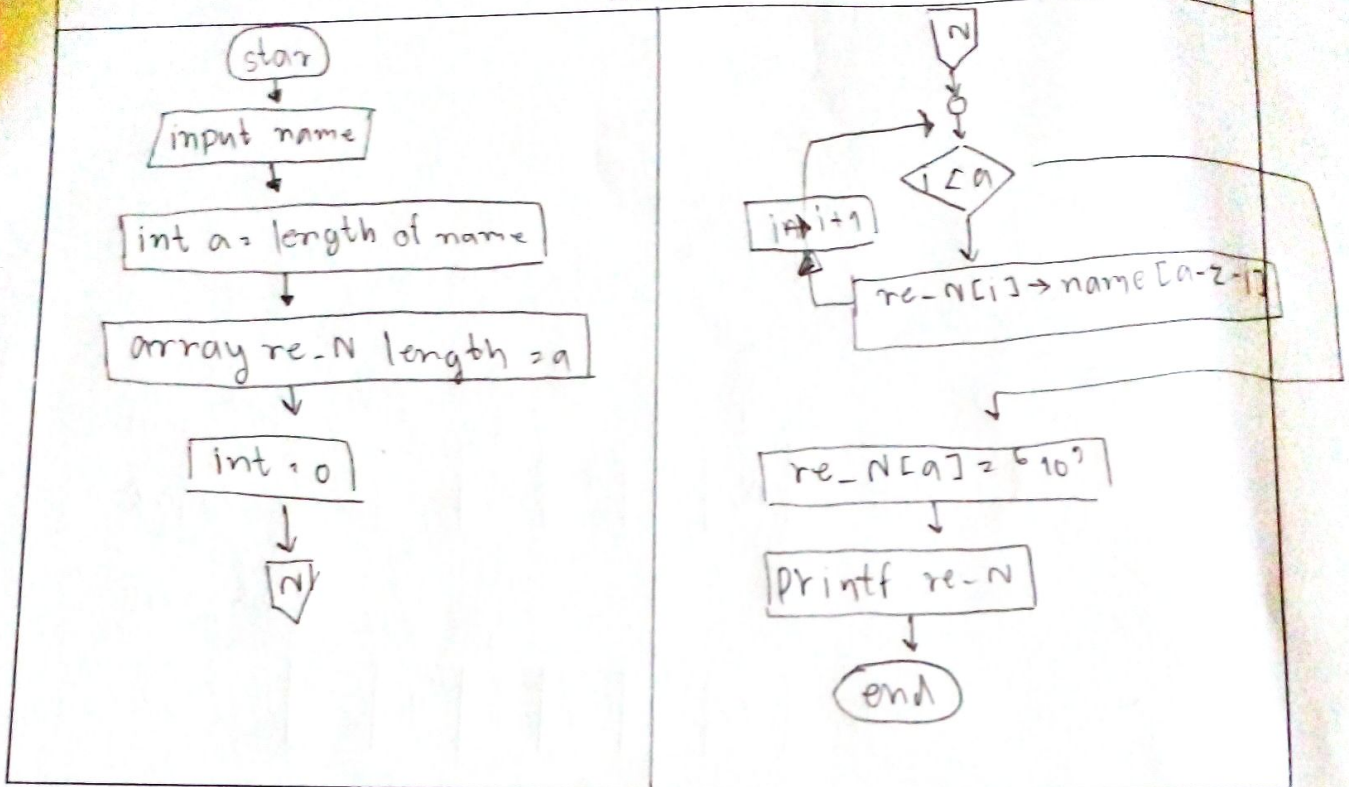 star
input name
int a = length of name
array re_N length = a
int = 0
N
N
i < a
i+1
re_N[i] → name[a-2-1]
re_N[a] = '10'
printf re_N
end